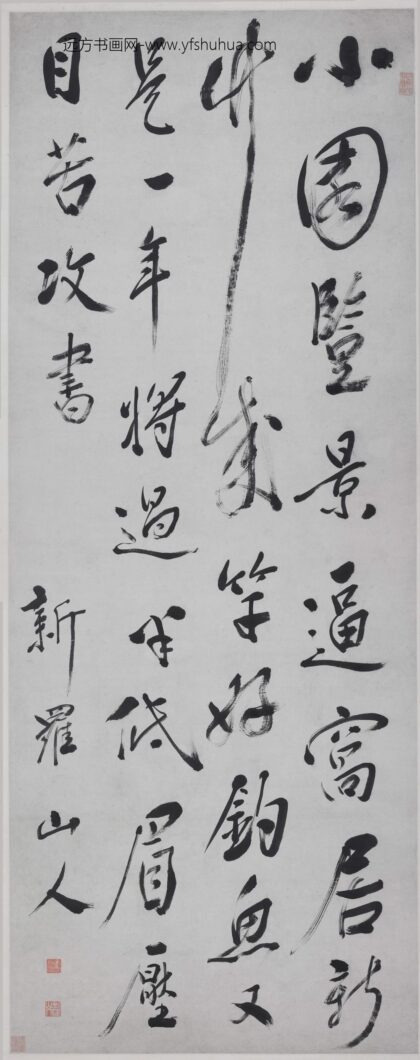 远方书画网-www.yfshuhua.com
小園豎景逼窩居新
竹成竿好釣魚又
是一年將過半低眉壓
目苦攻書
新羅山人